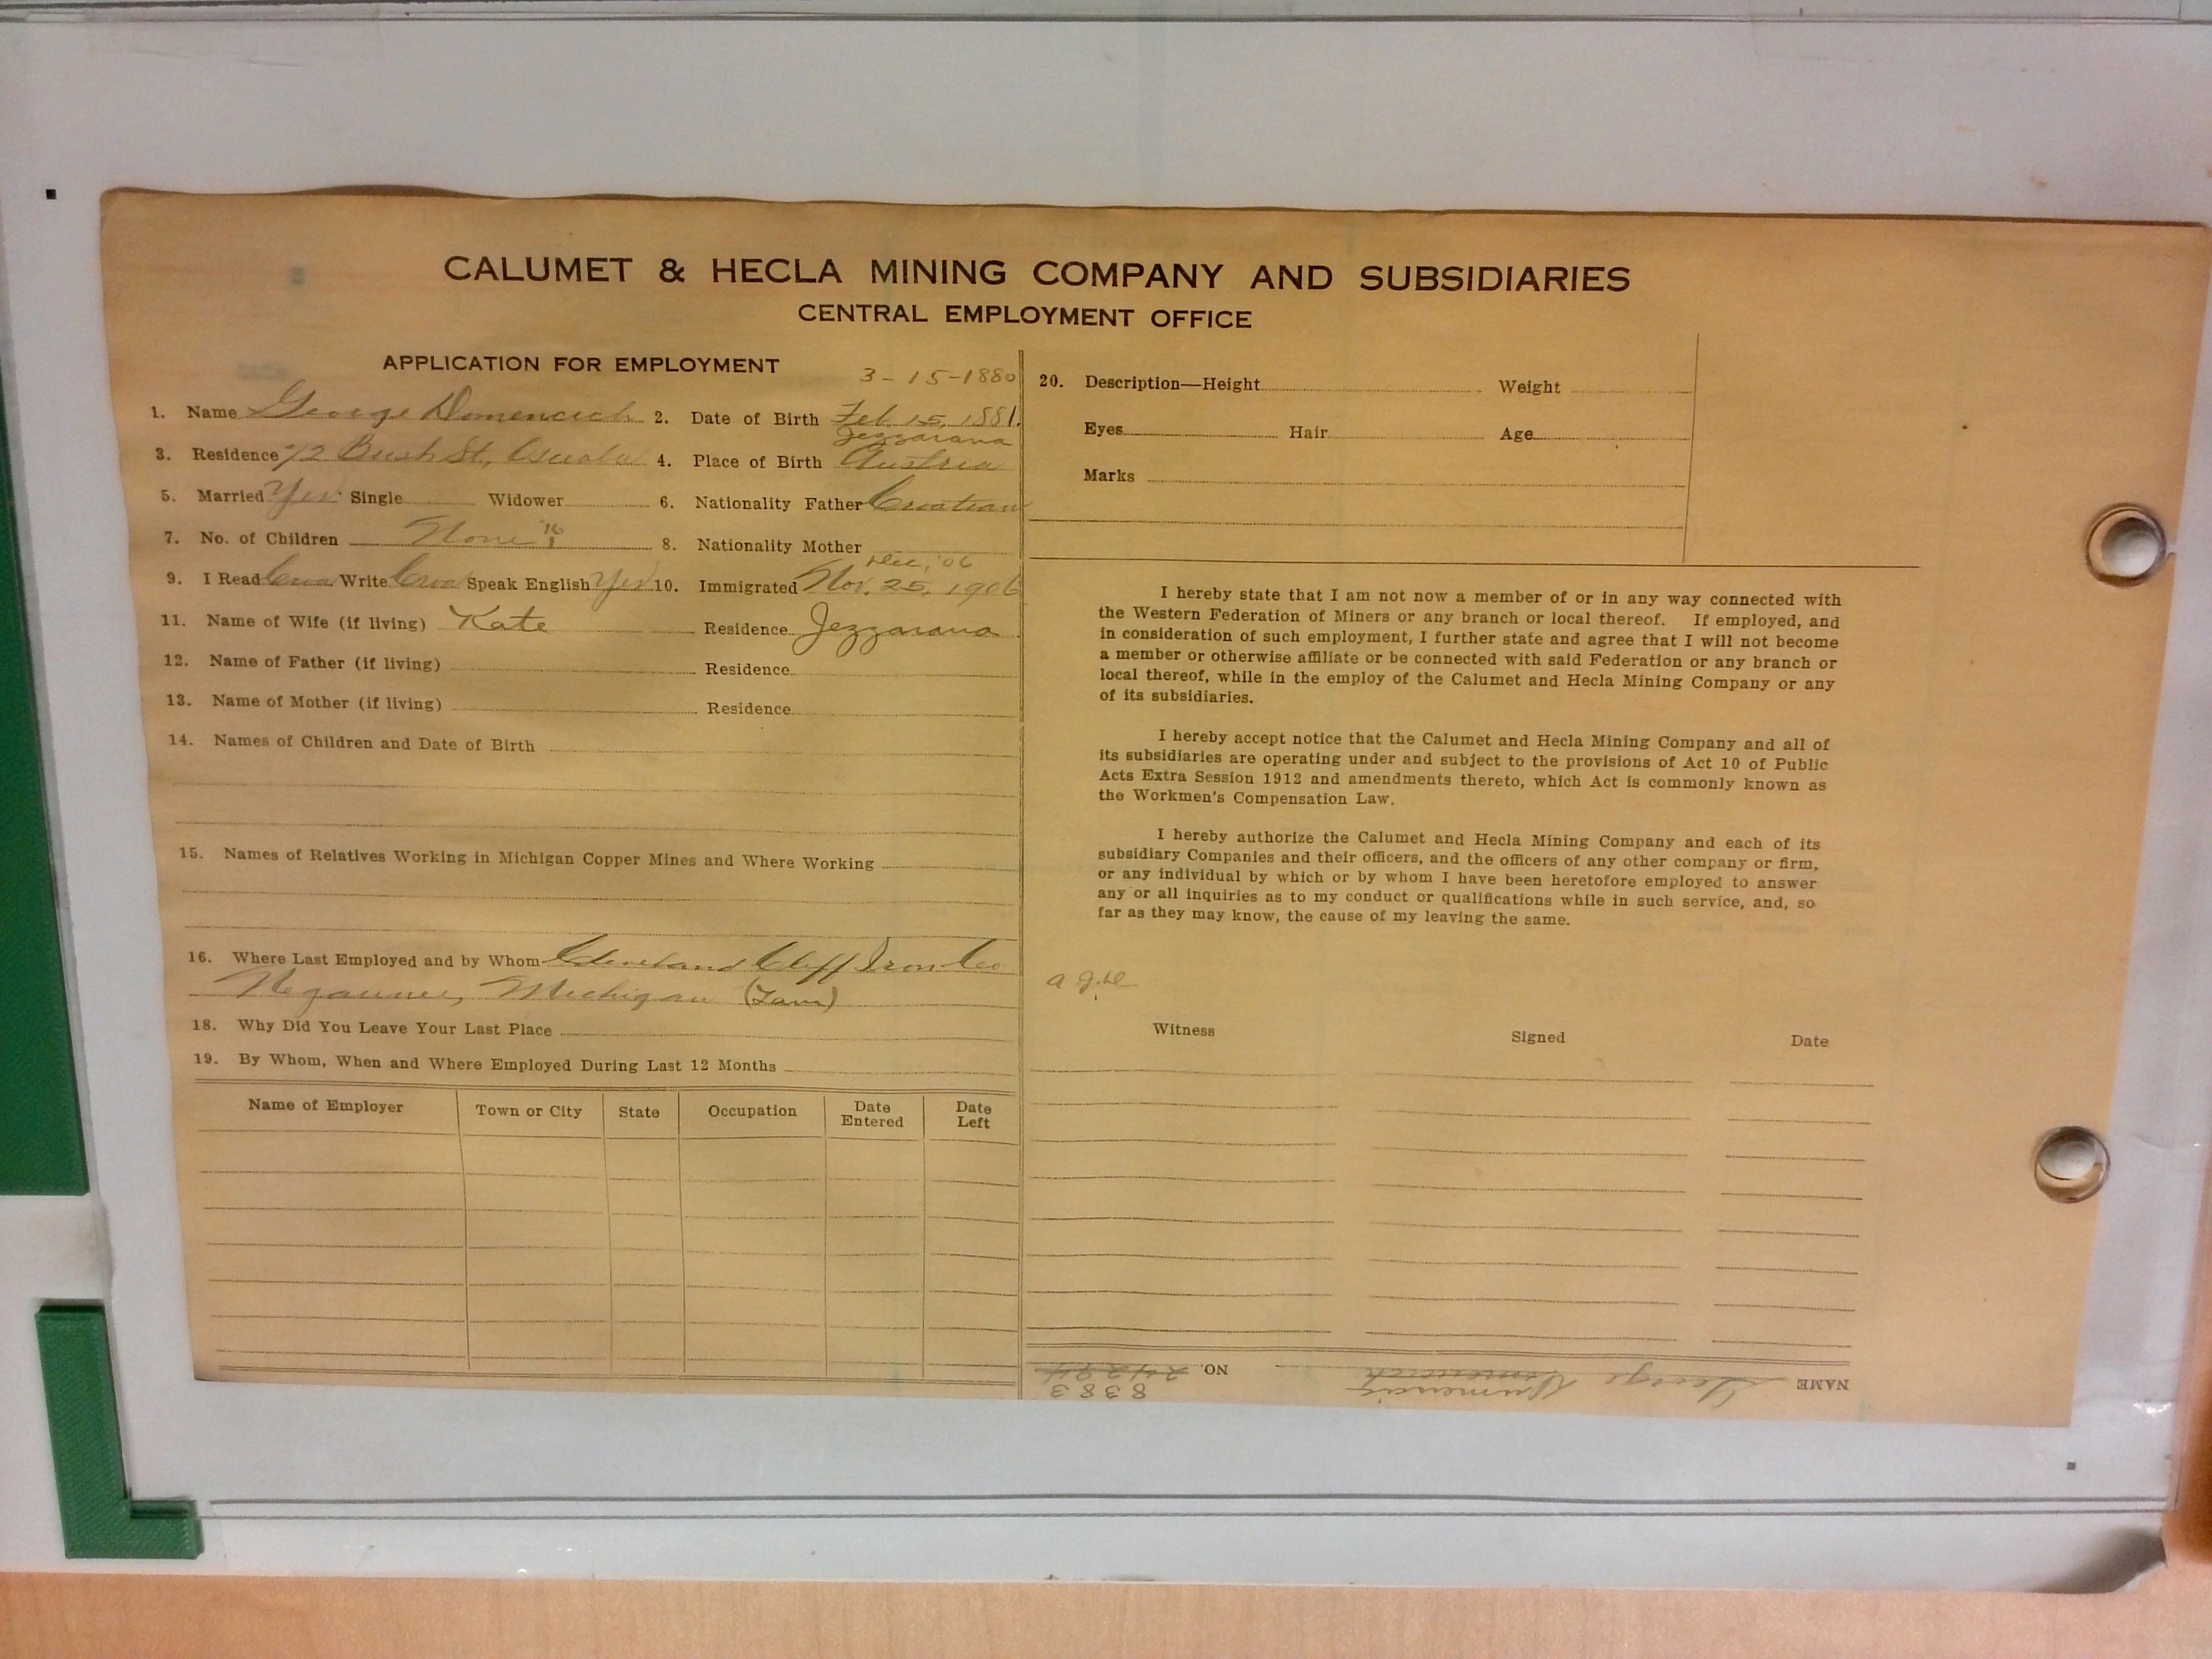 CALUMET & HECLA MINING COMPANY AND SUBSIDIARIES
CENTRAL EMPLOYMENT OFFICE
APPLICATION FOR EMPLOYMENT
3-15-1880
1. Name George Domencich 2. Date of Birth Feb. 15, 1881.
Jezzarana
3. Residence 72 Bush St., Osceola 4. Place of Birth Austria
5. Married Yes. Single Widower 6. Nationality Father Croatian
7. No. of Children None '16 8. Nationality Mother
Dec, '06
9. I Read Croa Write Croa Speak English Yes 10. Immigrated Nov. 25, 1906
11. Name of Wife (if living) Kate Residence Jezzarana
12. Name of Father (if living) Residence
13. Name of Mother (if living) Residence
14. Names of Children and Date of Birth
15. Names of Relatives Working in Michigan Copper Mines and Where Working
16. Where Last Employed and by Whom Cleveland Cliff Iron Co
Negaunee, Michigan
18. Why Did You Leave Your Last Place
19. By Whom, When and Where Employed During Last 12 Months
Name of Employer Town or City State Occupation Date Entered Date Left
20. Description—Height Weight
Eyes Hair Age
Marks
I hereby state that I am not now a member of or in any way connected with
the Western Federation of Miners or any branch or local thereof. If employed, and
in consideration of such employment, I further state and agree that I will not become
a member or otherwise affiliate or be connected with said Federation or any branch or
local thereof, while in the employ of the Calumet and Hecla Mining Company or any
of its subsidiaries.
I hereby accept notice that the Calumet and Hecla Mining Company and all of
its subsidiaries are operating under and subject to the provisions of Act 10 of Public
Acts Extra Session 1912 and amendments thereto, which Act is commonly known as
the Workmen's Compensation Law.
I hereby authorize the Calumet and Hecla Mining Company and each of its
subsidiary Companies and their officers, and the officers of any other company or firm,
or any individual by which or by whom I have been heretofore employed to answer
any or all inquiries as to my conduct or qualifications while in such service, and, so
far as they may know, the cause of my leaving the same.
Witness Signed Date
NAME George Domencich NO. 24284
Dumencic 8383